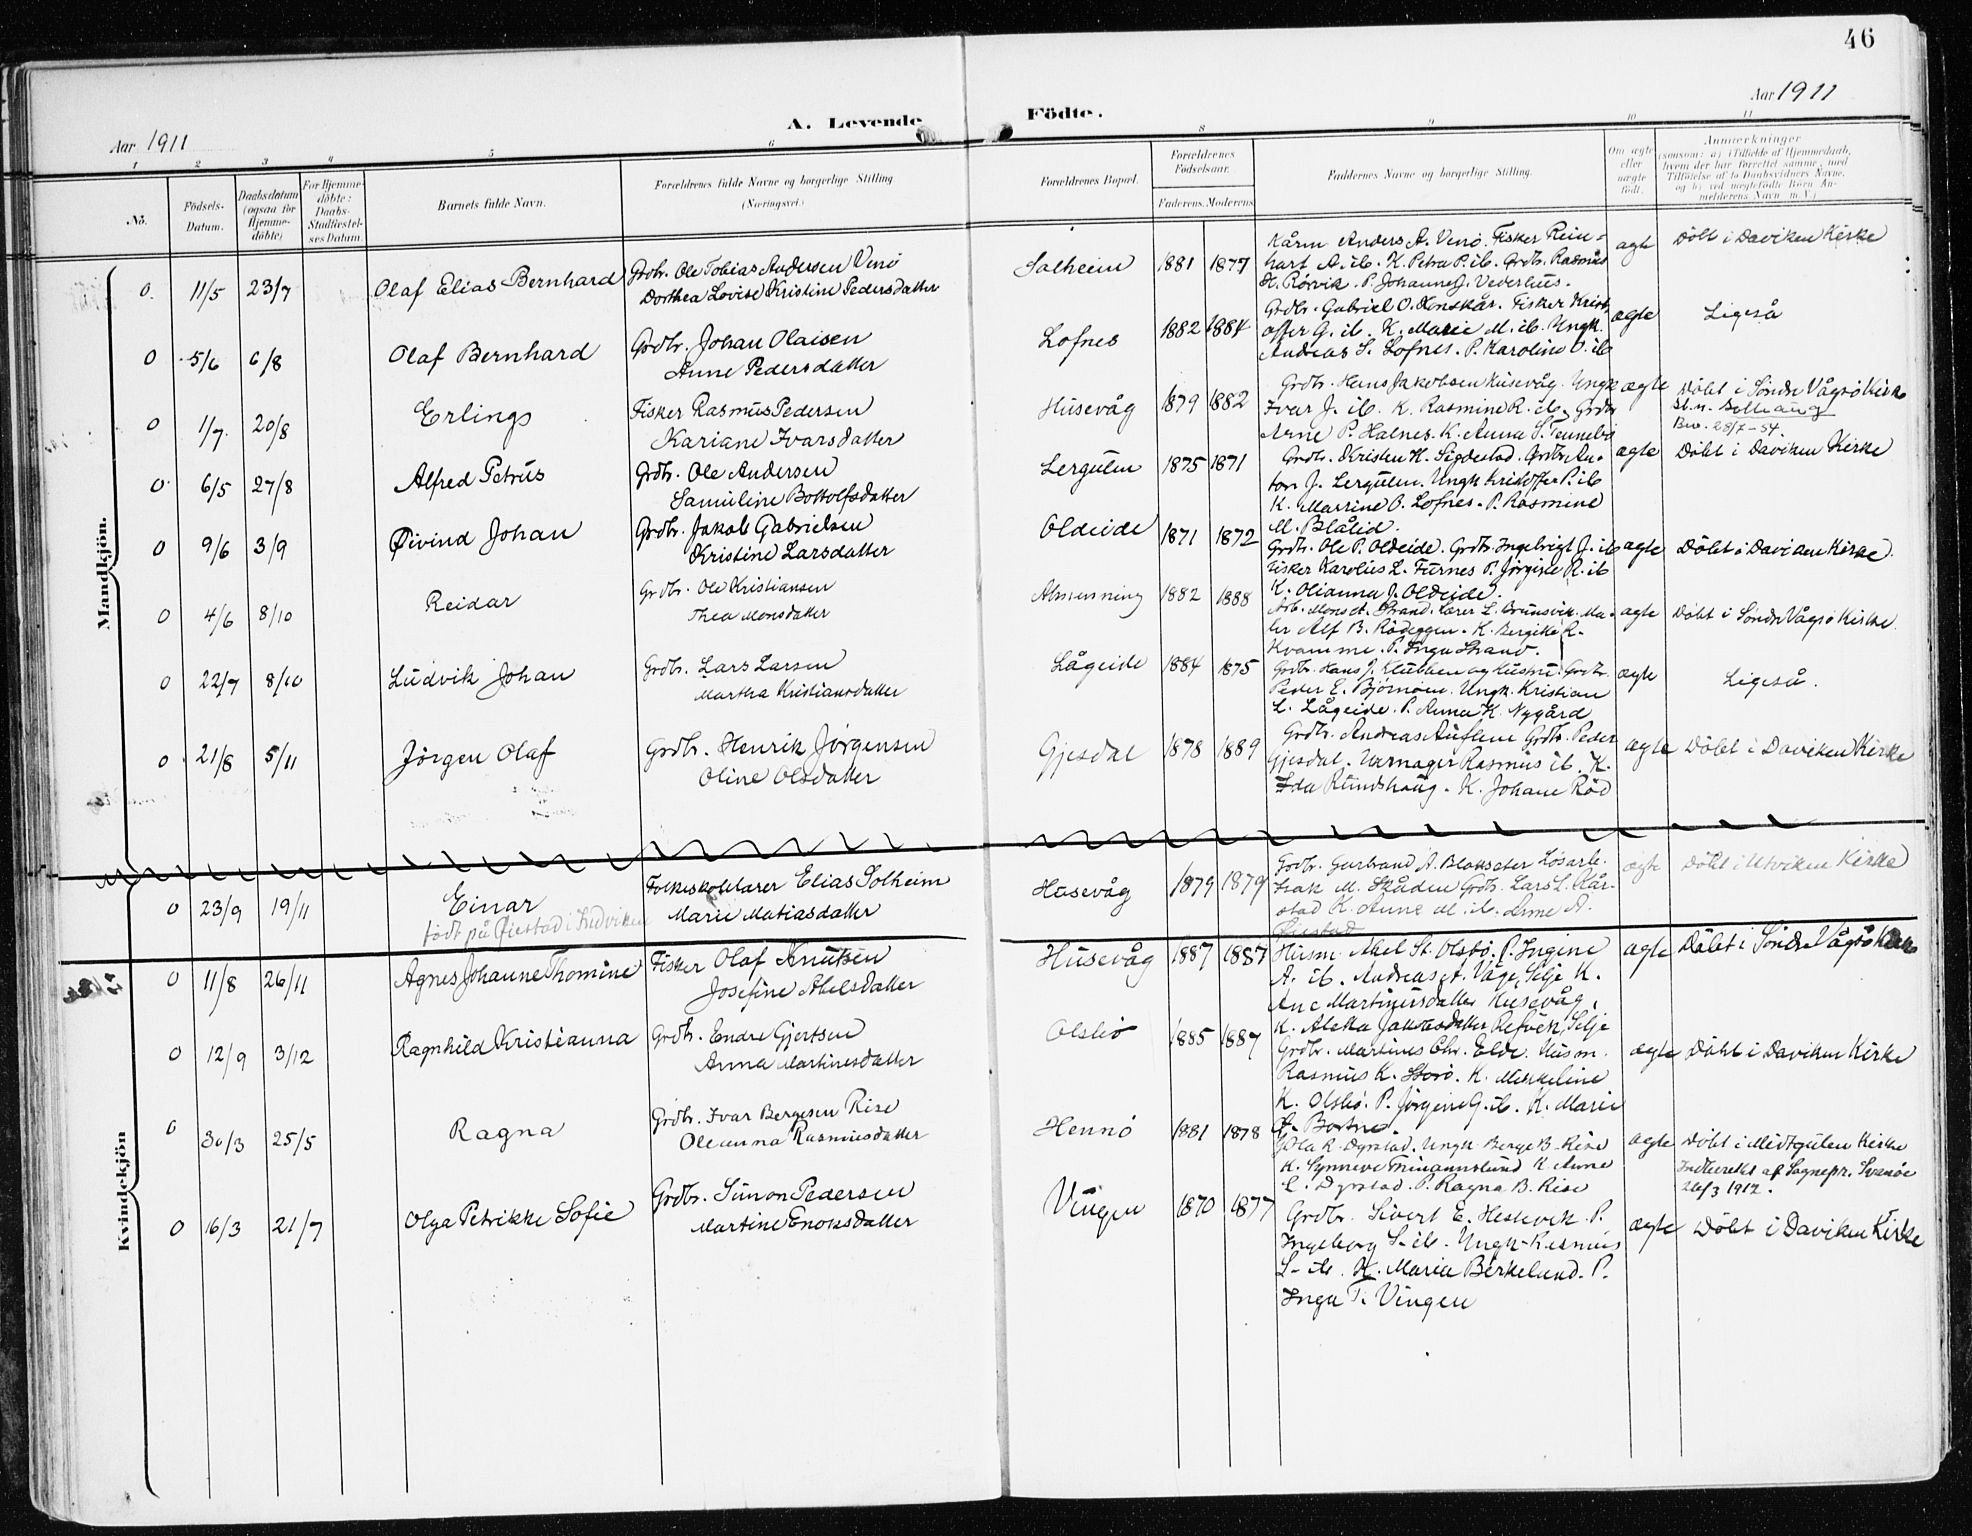 46
Aar 1911
Aar 1911
A. Levende Födte.
1 2 3 4 5 6 8 9 10 11
No.
Födsels-Datum.
Daabsdatum (ogsaa for Hjemme-döbte)
For Hjemme-döbte: Daabs-Stadfæstel-ses Datum.
Barnets fulde Navn.
Forældrenes fulde Navne og borgerlige Stilling (Næringsvei.)
Forældrenes Bopæl.
Forældrenes Födselsaar.
Faderens. Moderens
Faddernes Navne og borgerlige Stilling.
Om ægte eller uægte födt.
Anmærkninger
(saasom: a) i Tilfælde af Hjemmedaab, hvem der har forrettet samme, med Tilföielse af to Daabsvidners Navne, og b) ved uægtefödte Börn An-melderens Navn m. V.)
Mandkjön.
0. 11/5 23/7 Olaf Elias Bernhard
Grdbr. Ole Tobias Andersen Venö
Dorthea Lovise Kristine Pedersdatter
Solheim 1881 1877
Kårm Anders A. Venö. Fisker Rein-
hart A. ib. K. Petra P. ib. Grdb. Rasmus
H. Rörvik. P. Johanne J. Vederhus.
ægte Döbt i Daviken Kirke
0 5/6 6/8 Olaf Bernhard
Grdbr. Johan Olaisen
Anne Pedersdatter
Lofnes 1882 1884
Grdbr. Gabriel O. Fisker Krist-
offer G. ib. K. Marie M. ib. Ungk.
Andreas S. Lofnes. P. Karoline O. ib
ægte Ligeså
0 1/7. 20/8 Erlings
Fisker Rasmus Pedersen
Kariane Ivarsdatter
Husevåg 1879 1882
Grdbr. Hans Jakobsen Husevåg. Ungk
Ivar J. ib. K. Rasmine R. ib. Grdbr
Arne P. Halnes. K. Anna S. Tennebö
ægte Döbt i Söndr Vågsö Kirke
Bev. 28/7-54.
0 6/5 27/8 Alfred Petrus
Grdbr. Ole Andersen
Samuline Bottolfsdatter
Lergulen 1875 1871
Grdbr. Kristen H. Sigdestad. Grdbr An-
ton J. Lergulen. Ungk Kristoffer P. ib
K. Marrine O. Lofnes. P. Rasmine
M. Blålid.
ægte Döbt i Daviken Kirke
0 9/6 3/9 Øivind Johan
Grdbr. Jakob Gabrielsen
Kristine Larsdatter
Oldeide 1871 1872
Grdbr. Ole P. Oldeide. Grdbr Ingebrigt J. ib
Fisker Karolus L. Furnes P. Jörgine R. ib
K. Olianna J. Oldeide.
ægte Döbt i Daviken Kirke.
0 4/6 8/10 Reidar
Grdbr. Ole Kristiansen
Thea Monsdatter
Almenning 1882 1888
Arb. Mons A. Strand. Lærer L. Brunsvik. Ma-
ler Alf B. Rödeggen. K. Bergitte R.
Kvamme. P. Inga Strand.
ægte Döbt i Söndr Vågsö Kirke.
0 22/7 8/10 Ludvik Johan
Grdbr. Lars Larsen
Martha Kristiansdatter
Lågeide 1884 1875
Grdbr. Hans J. Klubben og Hustru. Grdbr.
Peder E. Björnöen. Ungk. Kristian
L. Lågeide. P. Anna K. Nygård
ægte Ligeså.
0 21/8 5/11 Jörgen Olaf
Grdbr. Henrik Jörgensen
Oline Olsdatter
Gjesdal 1878 1889
Grdbr. Andreas Grdbr. Peder
Gjesdal. Rasmus ib. K.
Ida Rundshaug. K. Johane Röd
ægte Döbt i Daviken Kirke
0 23/9 19/11 Einar
födt på Öiestad i Indviken
Folkeskolelærer Elias Solheim
Marie Matiasdatter
Husevåg 1879 1879
Grdbr. Gurbrand A. Blakseter Lösarb.
Isak M. Skåden Grdbr. Lars L. Rår-
stad K. Anne M. ib. Anne A.
Öiestad
ægte Döbt i Utviken Kirke
Kvindekjön
0 11/8 26/11 Agnes Johanne Thomine
Fisker Olaf Knutsen
Josefine Abelsdatter
Husevåg 1887 1887
Husm. Abel St. Olsbö. P. Ingine
A. ib. Andreas A. Våge, Selje K.
Ane Martinusdatter Husevåg,
K. Aletta Jakobsdatter Refvik, Selje
ægte Döbt i Söndr Vågsö Kirke
0 12/9 3/12 Ragnhild Kristianna
Grdbr. Endre Gjertsen
Anna Martinesdatter
Olsbö 1885 1887
Grdbr. Martines Chr. Elde. Husm.
Rasmus K. K. Mikkeline
K. Olsbö. P. Jörgine G. ib. K. Marie
G. Bortne
ægte Döbt i Daviken Kirke
0 30/3 25/5 Ragna
Grdbr. Ivar Bergesen Rise
Oleanna Rasmusdatter
Hennö 1881 1878
Ola R. Dyrstad. Ungk. Berge B. Rise
K. Synneve K Anne
L. Dyrstad. P. Ragna B. Rise
ægte Döbt i Midtgulen Kirke
Indberettet af Sognepr. Svanöe
26/3 1912.
0 16/3 21/7 Olga Petrikke Sofie
Grdbr. Simon Pedersen
Martine Enoksdatter
Vingen 1870 1877
Grdbr. Sivert E. Heskvik. P.
Ingeborg S. ib. Ungk. Rasmus
S. ib. K. Maria Birkelund. P.
Inga T. Vingen
ægte Döbt i Daviken Kirke